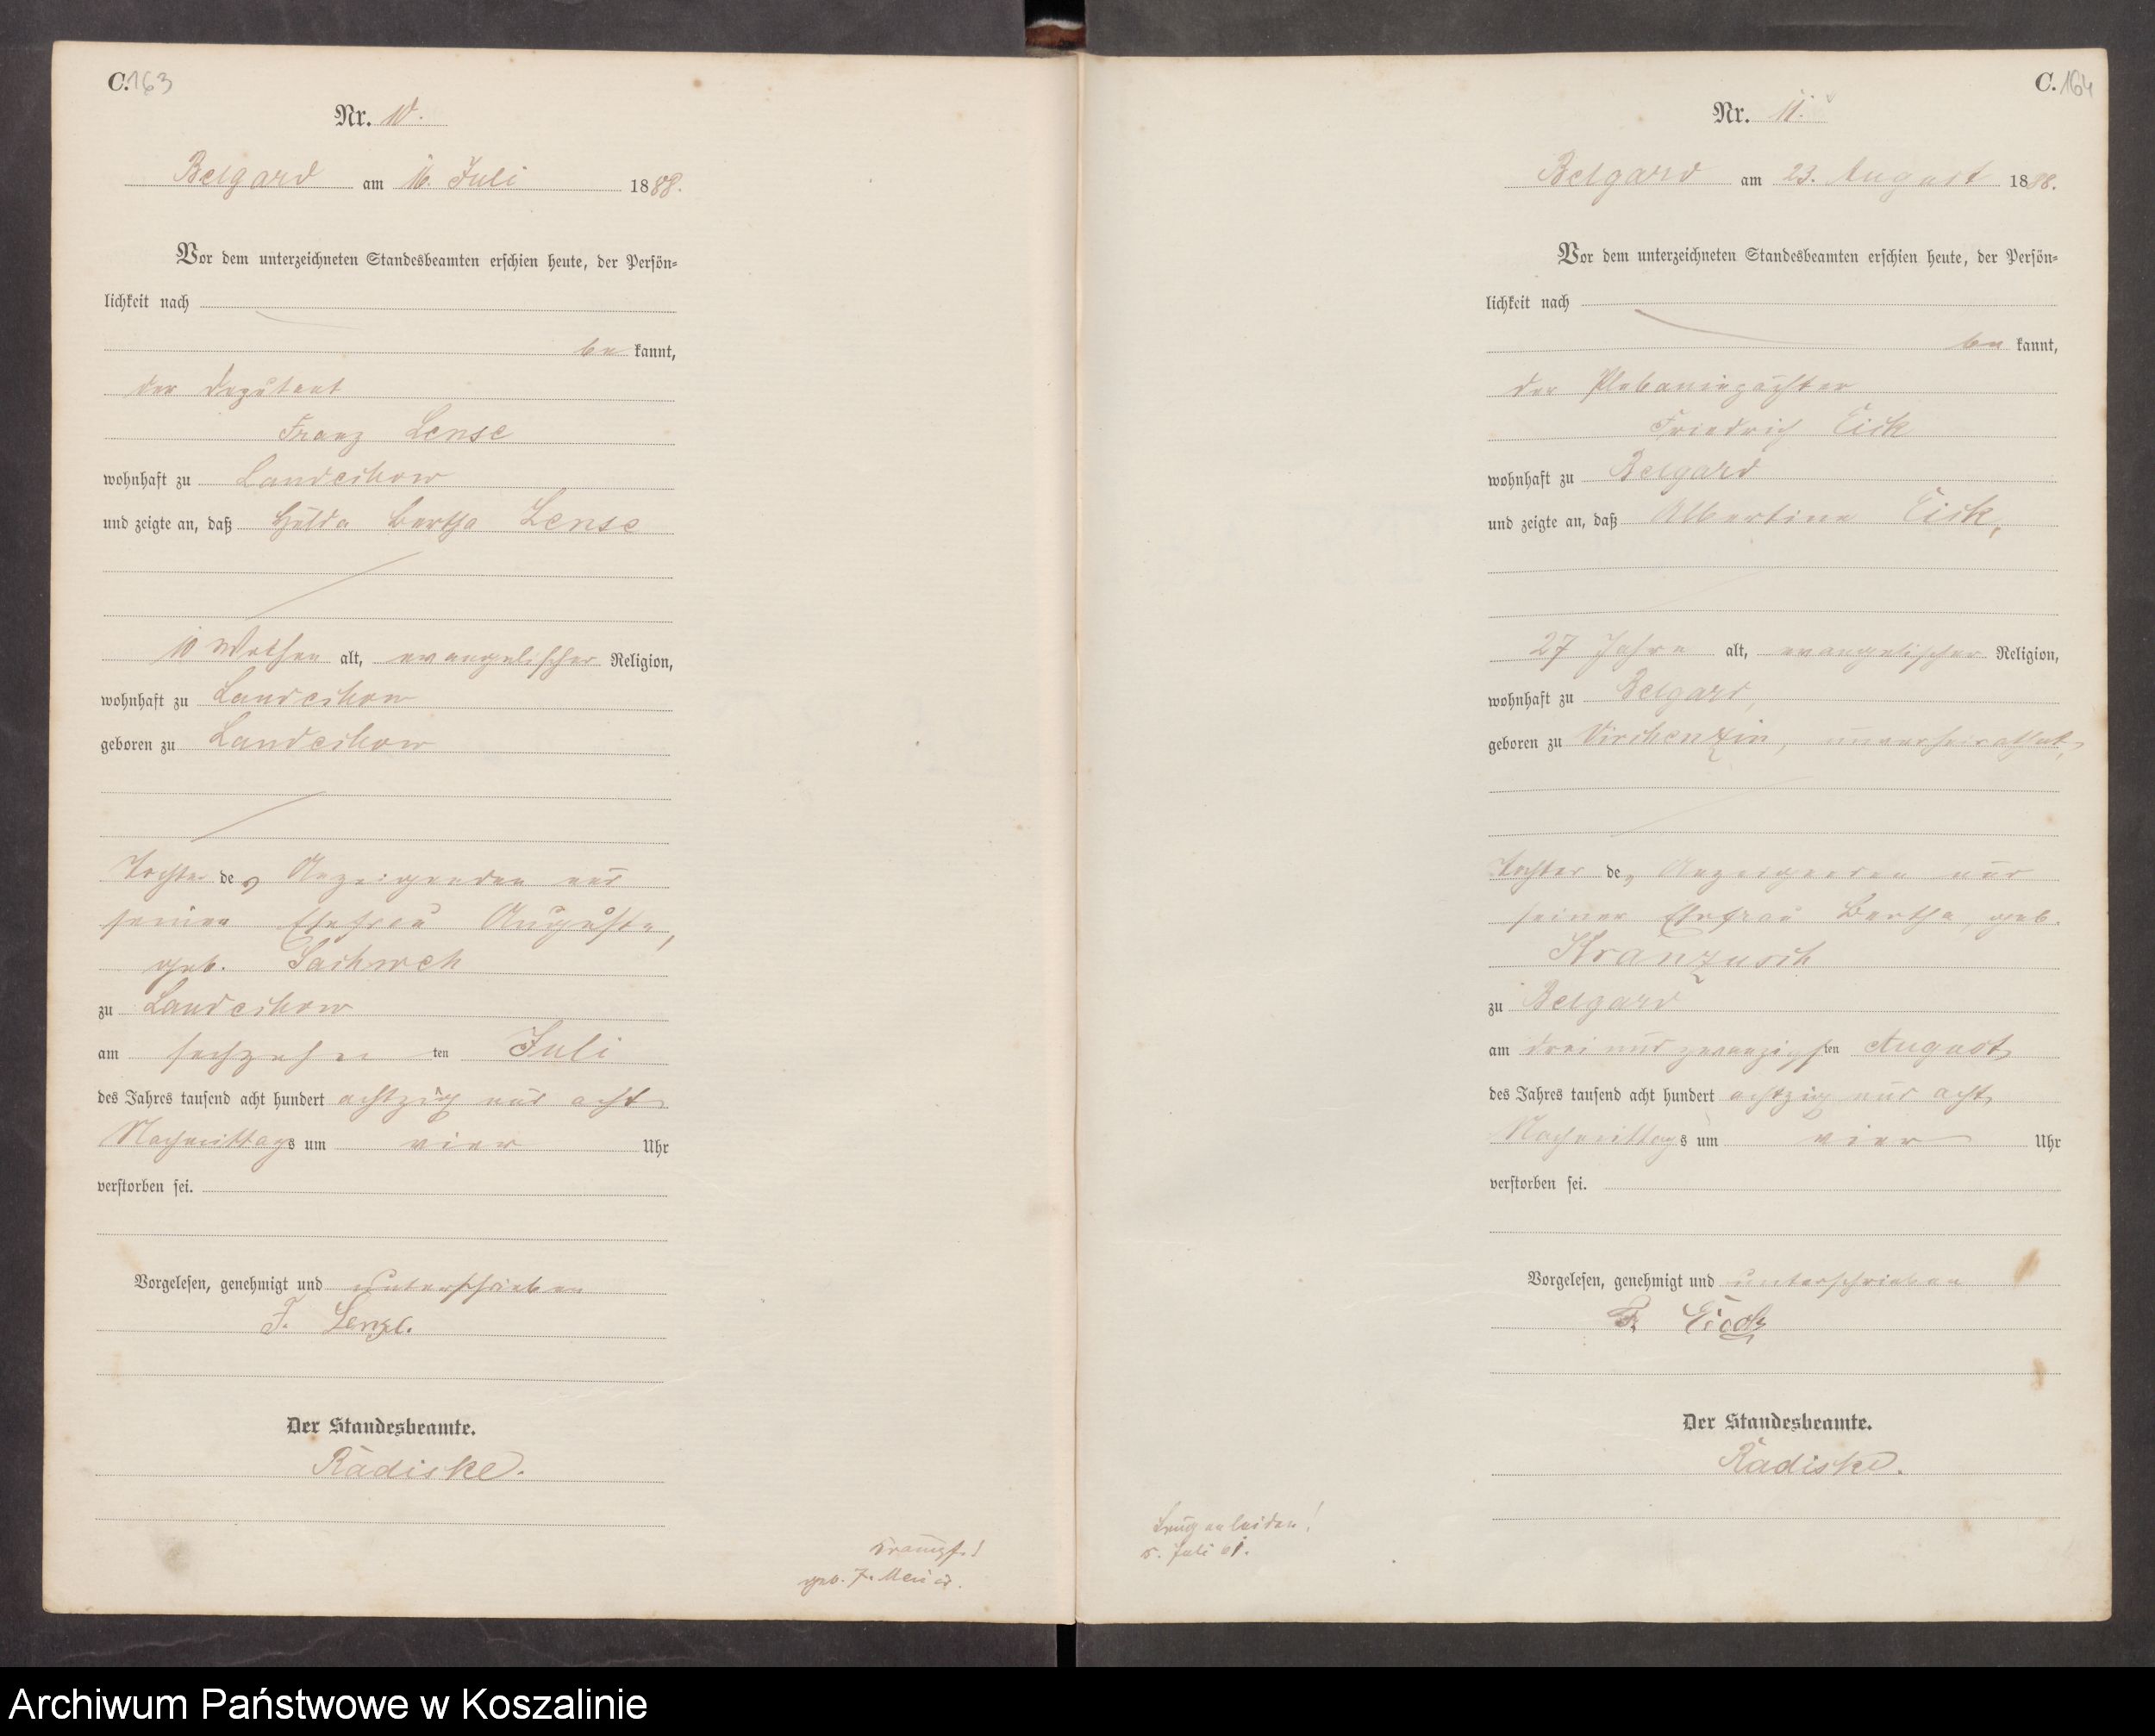 C. 163
Nr. 10.
Belgard am 16. Juli 1888.
Vor dem unterzeichneten Standesbeamten erschien heute, der Persön-
lichkeit nach
be kannt,
der Deputant
Franz Lense
wohnhaft zu Landechow
und zeigte an, daß Hulda Bertha Lense
10 Wochen alt, evangelischer Religion,
wohnhaft zu Landechow
geboren zu Landechow
Tochter des Anzeigenden und
seiner Ehefrau Auguste,
geb.
zu Landechow
am sechzehn ten Juli
des Jahres tausend acht hundert achtzig und acht
Nachmittags um vier Uhr
verstorben sei.
Vorgelesen, genehmigt und unterschrieben
F.
Der Standesbeamte.
Radiske.
Krämpfe!
geb. 7. Mai
C. 164
Nr. 11.
Belgard am 23. August 1888.
Vor dem unterzeichneten Standesbeamten erschien heute, der Persön-
lichkeit nach
be kannt,
der
Friedrich Eick
wohnhaft zu Belgard
und zeigte an, daß Albertine Eick,
27 Jahre alt, evangelischer Religion,
wohnhaft zu Belgard,
geboren zu Virchenzin, unverheirathet,
Tochter des Anzeigenden und
seiner Ehefrau Bertha, geb.
Kranzusch
zu Belgard
am drei und zwanzigsten August
des Jahres tausend acht hundert achtzig und acht
Nachmittags um vier Uhr
verstorben sei.
Vorgelesen, genehmigt und unterschrieben
Fr Eick
Der Standesbeamte.
Radiske.
Lungenleiden!
5. Juli 61.
Archiwum Państwowe w Koszalinie